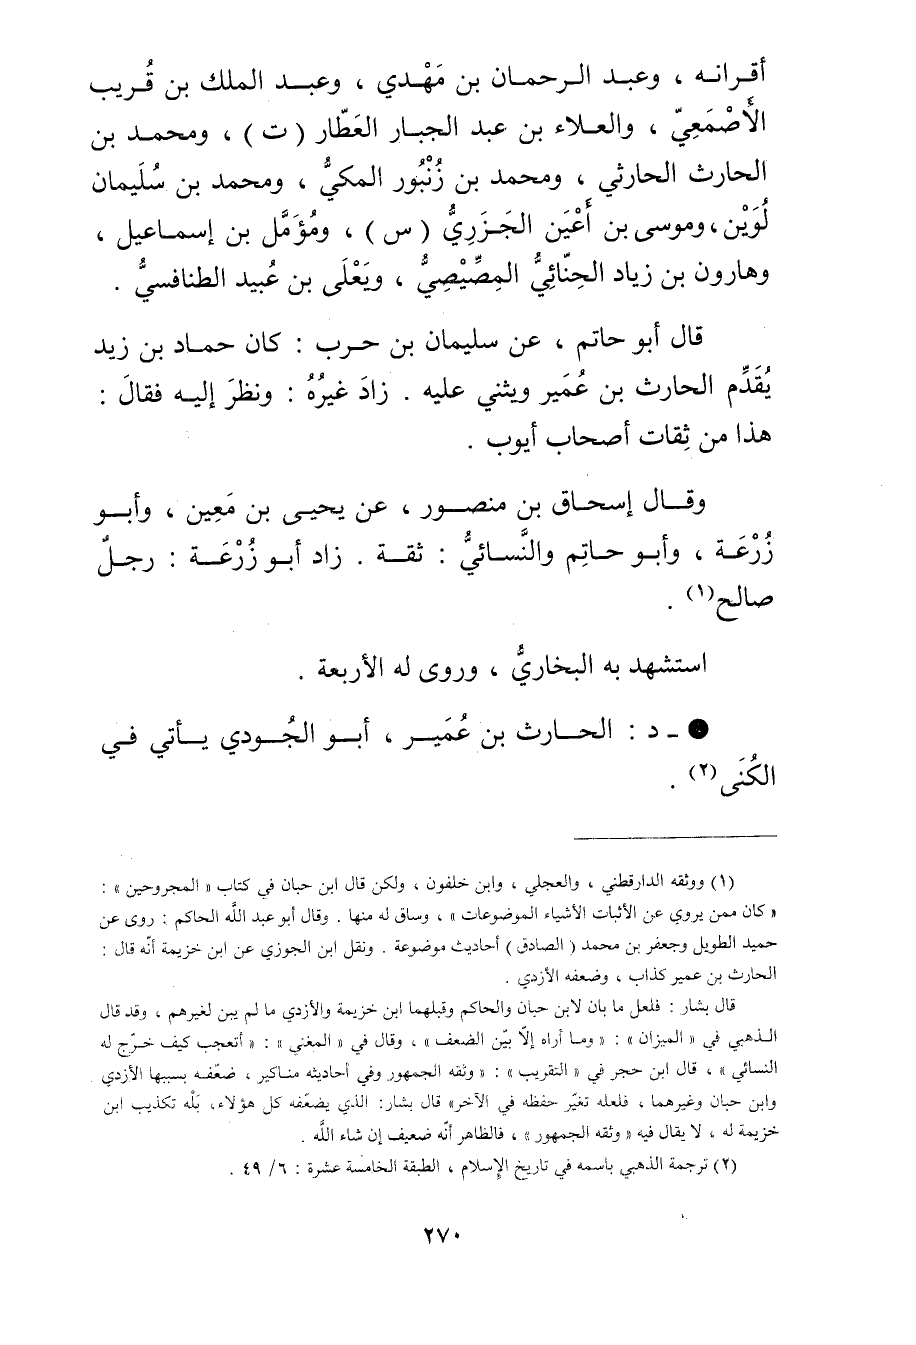 أقرانه ، وعبد الرحمان بن مَهْدي ، وعبد الملك بن قُريب
الأَصْمَعِيّ ، والعلاء بن عبد الجبار العَطّار ( ت ) ، ومحمد بن
الحارث الحارثي ، ومحمد بن زُنْبُور المكيُّ ، ومحمد بن سُلَيمان
لُوَيْن ، وموسى بن أَعْيَن الجَزَريُّ ( س ) ، ومُؤَمَّل بن إسماعيل ،
وهارون بن زياد الحِنّائِيُّ المِصِّيْصِيُّ ، ويَعْلَى بن عُبيد الطنافسيُّ .
قال أبو حاتم ، عن سليمان بن حرب : كان حماد بن زيد
يُقَدِّم الحارث بن عُمَير ويثني عليه . زادَ غيرُهُ : ونظرَ إليه فقالَ :
هذا من ثِقات أصحاب أيوب .
وقال إسحاق بن منصور ، عن يحيى بن مَعِين ، وأبو
زُرْعَة ، وأبو حاتِم والنَّسائيُّ : ثقة . زاد أبو زُرْعَة : رجلٌ
صالح(١) .
استشهد به البخاريُّ ، وروى له الأربعة .
● ـ د : الحارث بن عُمَير ، أبو الجُودي يأتي في
الكُنَى(٢) .
(١) ووثقه الدارقطني ، والعجلي ، وابن خلفون ، ولكن قال ابن حبان في كتاب « المجروحين » :
« كان ممن يروي عن الأثبات الأشياء الموضوعات » ، وساق له منها . وقال أبو عبد اللّه الحاكم : روى عن
حميد الطويل وجعفر بن محمد ( الصادق ) أحاديث موضوعة . ونقل ابن الجوزي عن ابن خزيمة أنّه قال :
الحارث بن عمير كذاب ، وضعفه الأزدي .
قال بشار : فلعل ما بان لابن حبان والحاكم وقبلهما ابن خزيمة والأزدي ما لم يبن لغيرهم ، وقد قال
الذهبي في « الميزان » : « وما أراه إلاّ بيّن الضعف » ، وقال في « المغني » : « أتعجب كيف خرّج له
النسائي » ، قال ابن حجر في « التقريب » : « وثقه الجمهور وفي أحاديثه مناكير ، ضعّفه بسببها الأزدي
وابن حبان وغيرهما ، فلعله تغيّر حفظه في الآخر» قال بشار: الذي يضعّفه كل هؤلاء، بَلْه تكذيب ابن
خزيمة له ، لا يقال فيه « وثقه الجمهور » ، فالظاهر أنّه ضعيف إن شاء اللّه .
(٢) ترجمة الذهبي باسمه في تاريخ الإسلام ، الطبقة الخامسة عشرة : ٦/ ٤٩ .
٢٧٠